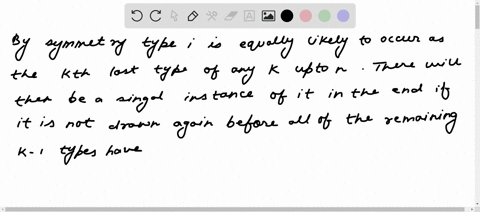 By symmetry type i is equally likely to occur as
the Kth last type of any K upto n. There will
then be a singal instance of it in the end if
it is not drawn again before all of the remaining
K-1 types have